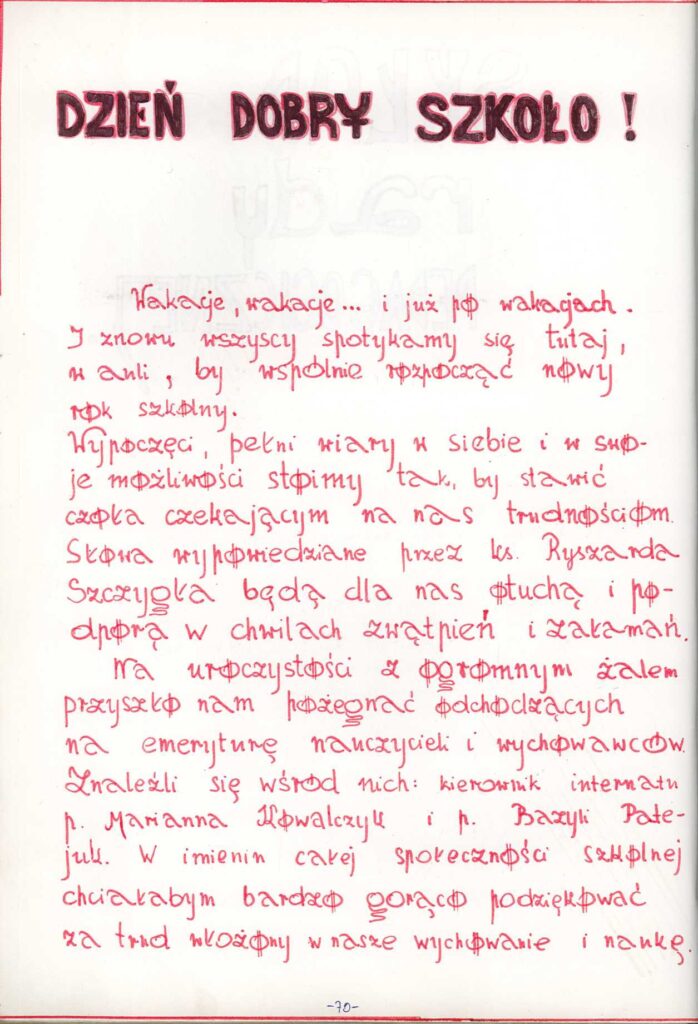 DZIEŃ DOBRY SZKOŁO !
Wakacje, wakacje... i już po wakacjach.
I znowu wszyscy spotykamy się tutaj,
w auli, by wspólnie rozpocząć nowy
rok szkolny.
Wypoczęci, pełni wiary w siebie i w swo-
je możliwości stoimy tak, by stawić
czoła czekającym na nas trudnościom.
Słowa wypowiedziane przez ks. Ryszarda
Szczygła będą dla nas otuchą i po-
dporą w chwilach zwątpień i załamań.
Na uroczystości z ogromnym żalem
przyszło nam pożegnać odchodzących
na emeryturę nauczycieli i wychowawców.
Znaleźli się wśród nich: kierownik internatu
p. Marianna Kowalczyk i p. Bazyli Pate-
juk. W imienin całej społeczności szkolnej
chciałabym bardzo gorąco podziękować
za trud włożony w nasze wychowanie i naukę.
-70-